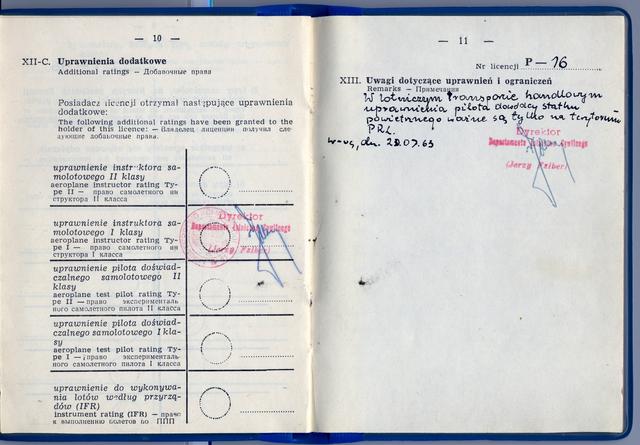 — 10 —
XII-C. Uprawnienia dodatkowe
Additional ratings — Добавочные права
Posiadacz licencji otrzymał następujące uprawnienia
dodatkowe:
The following additional ratings have been granted to the
holder of this licence: — Владелец лицензии получил сле-
дующие добавочные права:
uprawnienie instruktora sa-
molotowego II klasy
aeroplane instructor rating Ty-
pe II — право самолетного ин
структора II класса
uprawnienie instruktora sa-
molotowego I klasy
aeroplane instructor rating Ty-
pe I — право самолетного ин
структора I класса
Dyrektor
Departamentu Lotnictwa Cywilnego
(Jerzy
uprawnienie pilota doświad-
czalnego samolotowego II
klasy
aeroplane test pilot rating Ty-
pe II — право эксперименталь-
ного самолетного пилота II класса
uprawnienie pilota doświad-
czalnego samolotowego I kla-
sy
aeroplane test pilot rating Ty-
pe I — право эксперименталь-
ного самолетного пилота I класса
uprawnienie do wykonywa-
nia lotów według przyrzą-
dów (IFR)
instrument rating (IFR) — право
к выполнению полетов по ППП
— 11 —
Nr licencji P-16
XIII. Uwagi dotyczące uprawnień i ograniczeń
Remarks — Примечания
W lotniczym transporcie handlowym
uprawnienia pilota dowódcy statku
powietrznego ważne są tylko na terytorium
PRL.
dn. 63
Dyrektor
Departamentu Lotnictwa Cywilnego
(Jerzy